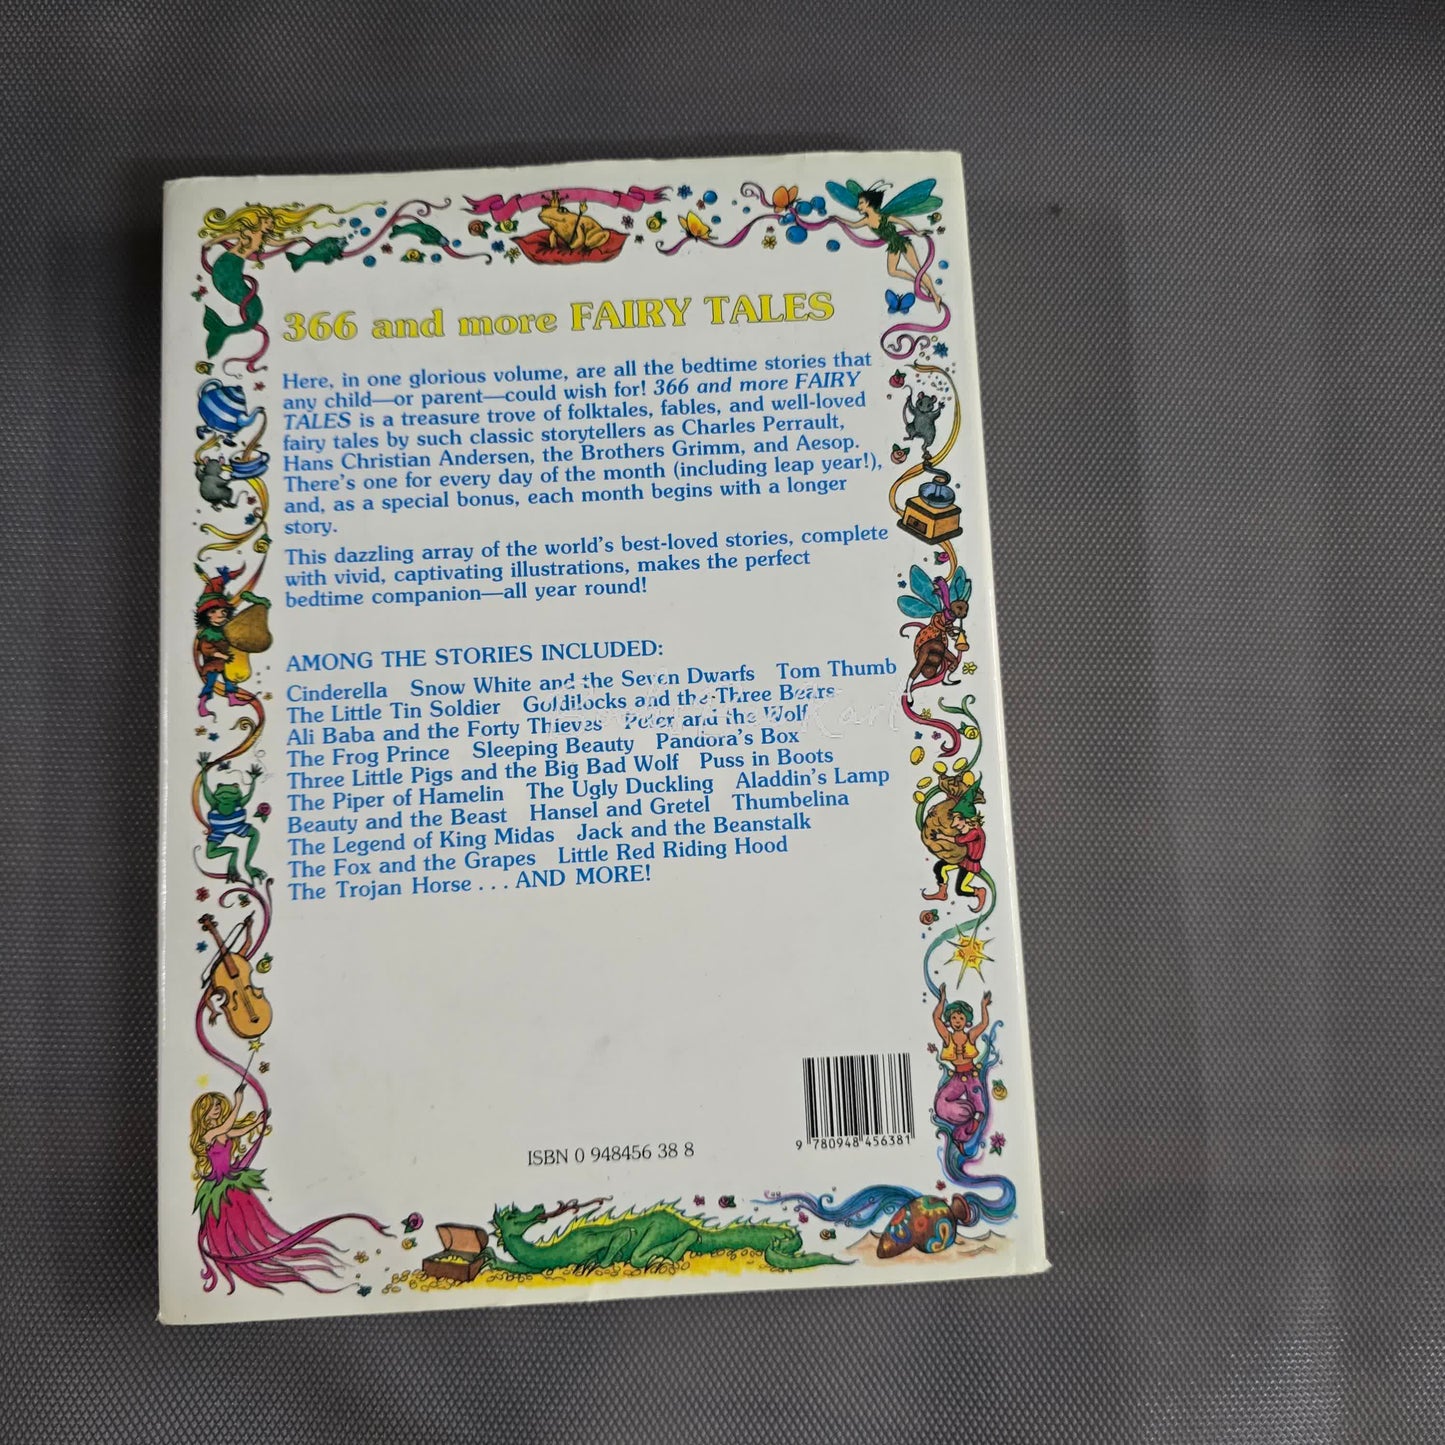 366 and more FAIRY TALES
Here, in one glorious volume, are all the bedtime stories that
any child—or parent—could wish for! 366 and more FAIRY
TALES is a treasure trove of folktales, fables, and well-loved
fairy tales by such classic storytellers as Charles Perrault,
Hans Christian Andersen, the Brothers Grimm, and Aesop.
There's one for every day of the month (including leap year!),
and, as a special bonus, each month begins with a longer
story.
This dazzling array of the world's best-loved stories, complete
with vivid, captivating illustrations, makes the perfect
bedtime companion—all year round!
AMONG THE STORIES INCLUDED:
Cinderella Snow White and the Seven Dwarfs Tom Thumb
The Little Tin Soldier Goldilocks and the Three Bears
Ali Baba and the Forty Thieves Peter and the Wolf
The Frog Prince Sleeping Beauty Pandora's Box
Three Little Pigs and the Big Bad Wolf Puss in Boots
The Piper of Hamelin The Ugly Duckling Aladdin's Lamp
Beauty and the Beast Hansel and Gretel Thumbelina
The Legend of King Midas Jack and the Beanstalk
The Fox and the Grapes Little Red Riding Hood
The Trojan Horse . . . AND MORE!
ISBN 0 948456 38 8
9 780948 456381